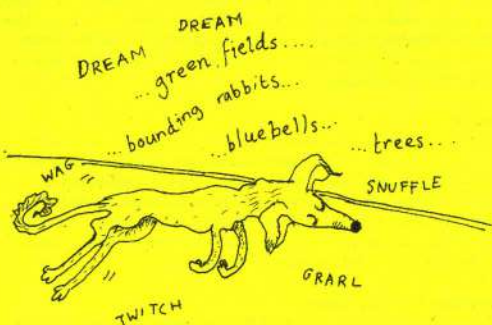 DREAM DREAM
...green fields....
...bounding rabbits...
...bluebells... ...trees...
WAG
SNUFFLE
GRARL
TWITCH